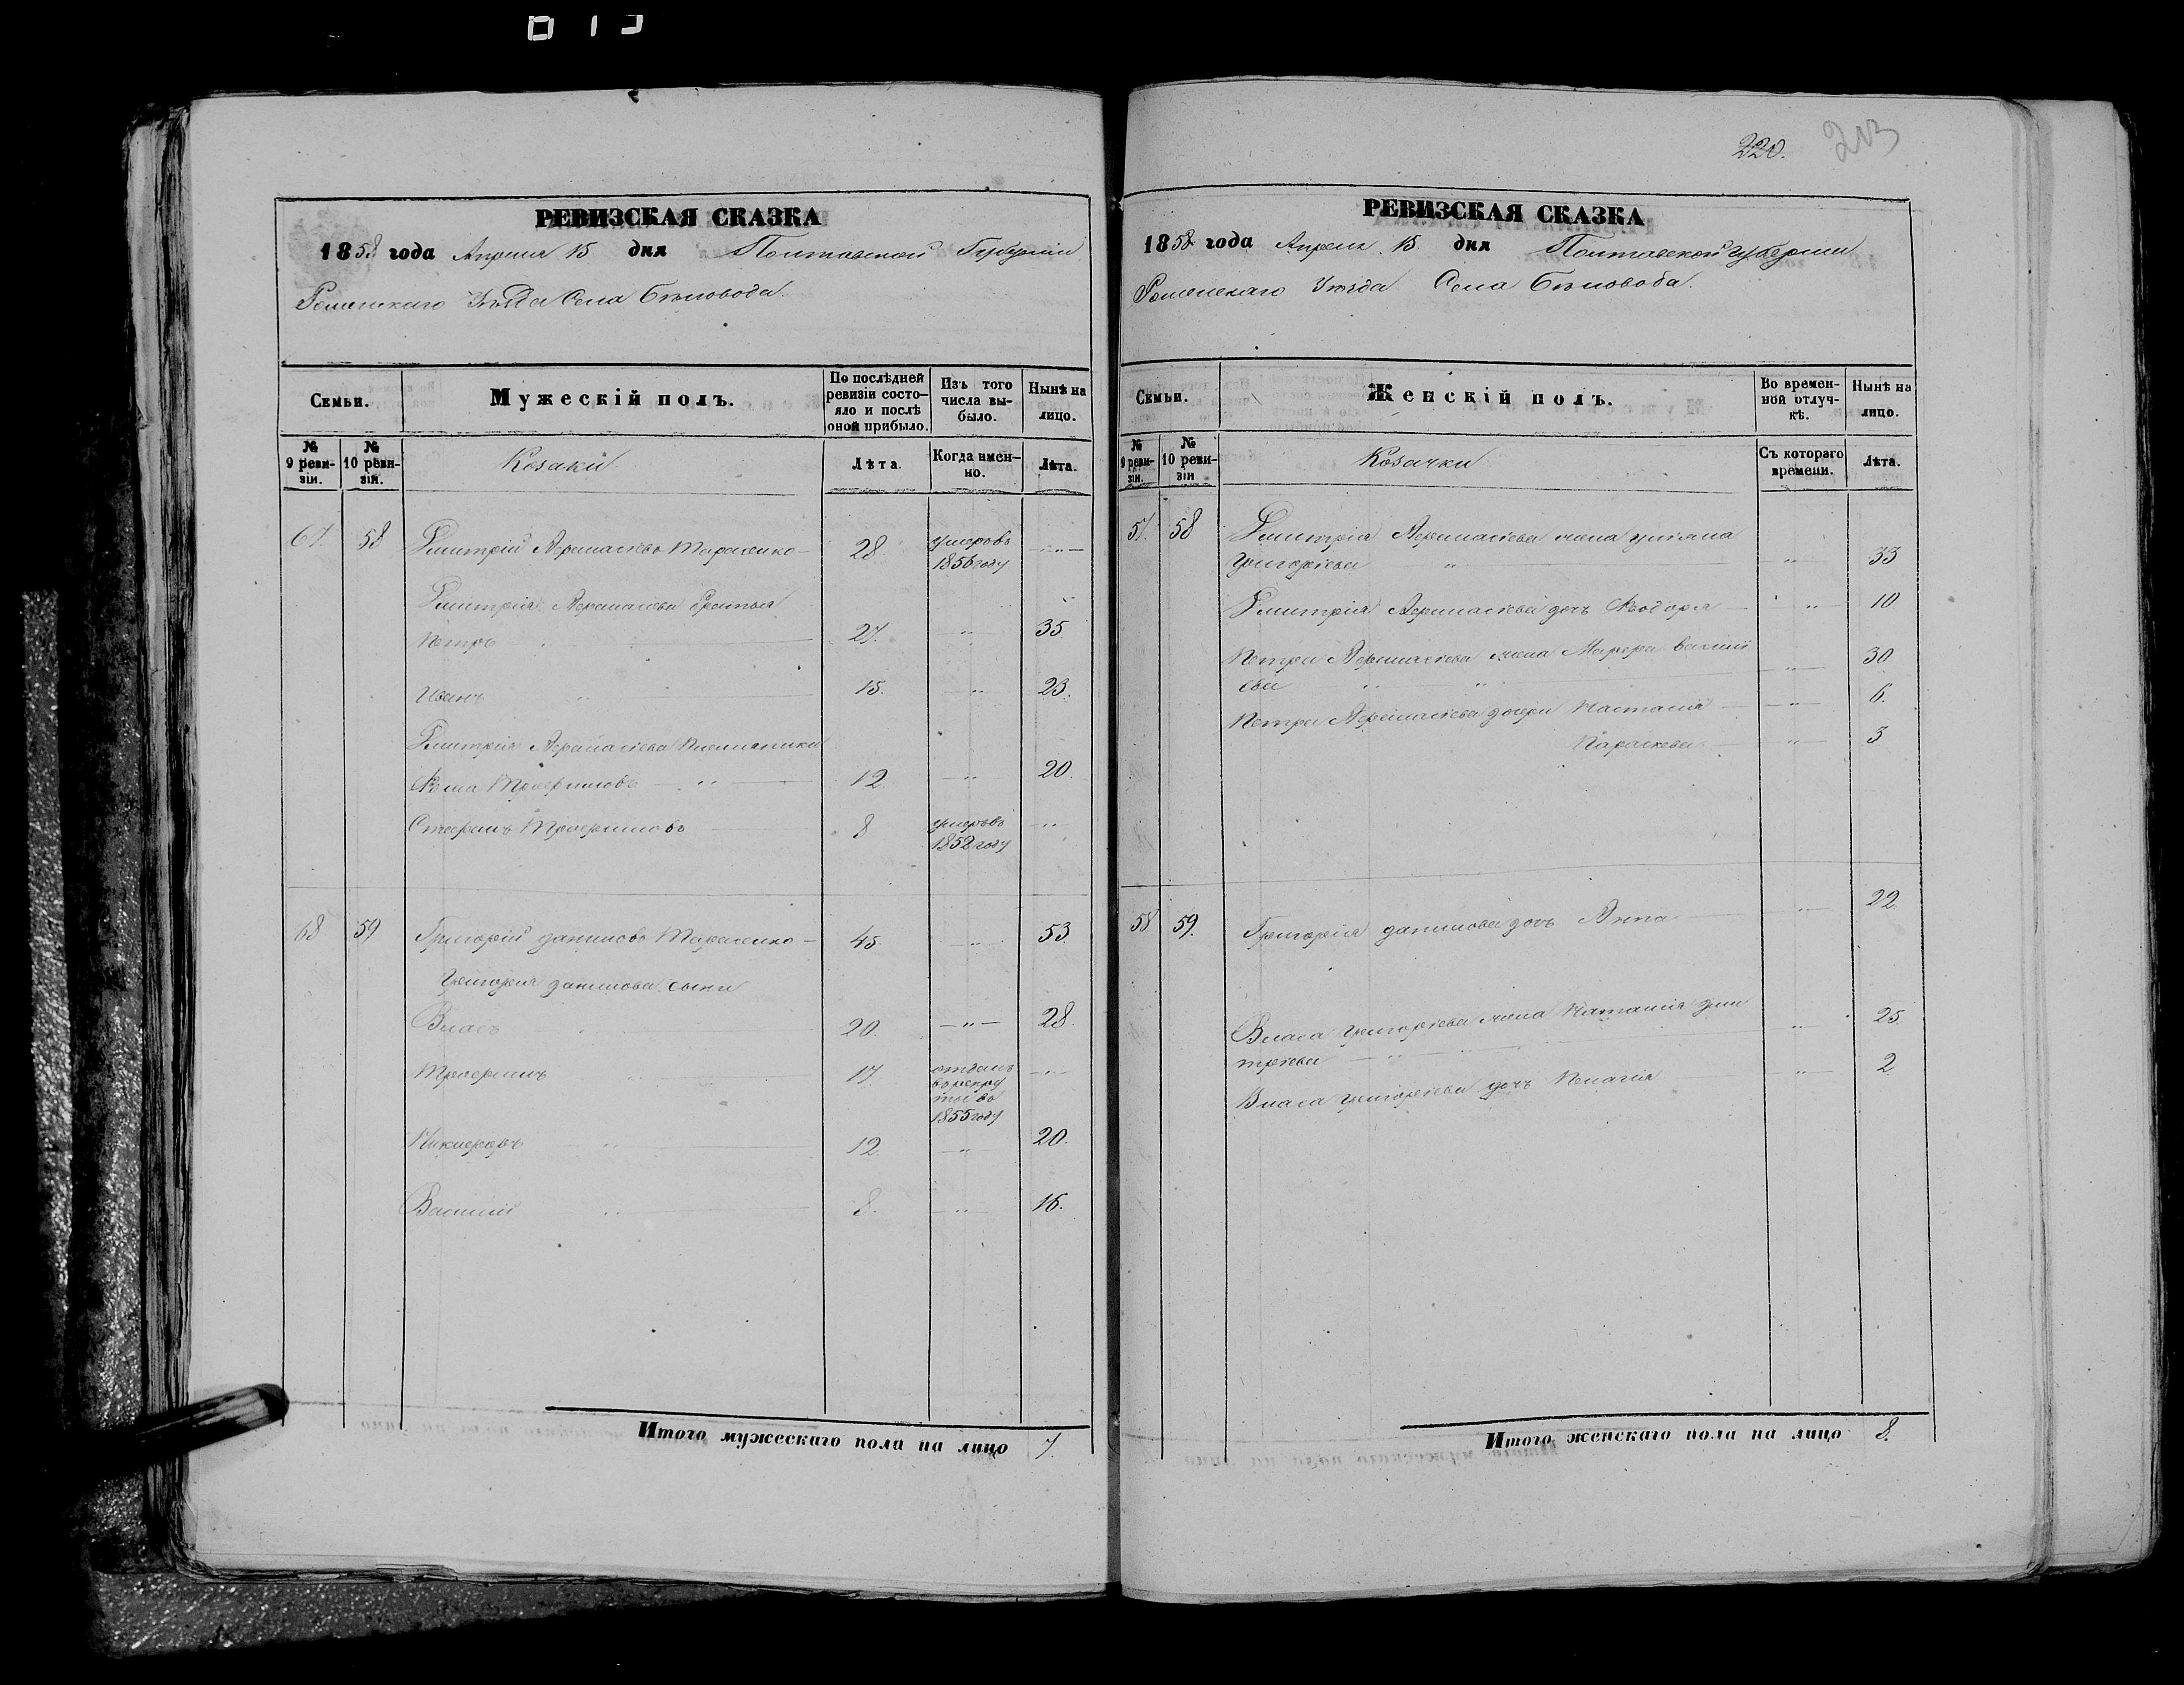 220.
213
РЕВИЗСКАЯ СКАЗКА
1858 года Апреля 15 дня Полтавской Губерніи
Роменскаго Уѣзда Села Бѣловода.
Семьи.
Мужескій полъ.
По послѣдней ревизіи состояло и послѣ оной прибыло.
Изъ того числа выбыло.
Нынѣ на лицо.
№ 9 ревизіи.
№ 10 ревизіи.
Козаки
Лѣта.
Когда именно.
Лѣта.
67. 58 Дмитрій Афанасіевъ Тарасенко 28 умеръ въ 1856 году
Дмитрія Афанасіева братья
Петръ 27. " 35.
Иванъ 15. " 23.
Дмитрія Афанасіева племянники
Фома Трофимовъ " 12 " 20.
Стефанъ Трофимовъ 8 умеръ въ 1852 году "
68 59 Григорій Даниловъ Тарасенко 45 " 53.
Григорія Данилова сыни
Власъ 20. " 28.
Трофимъ 17 отданъ в рекруты въ 1855 году "
Никифоръ " 12. " 20.
Василій " 8. " 16.
Итого мужескаго пола на лицо 7.
РЕВИЗСКАЯ СКАЗКА
1858 года Апреля 15 дня Полтавской Губерніи
Роменскаго Уѣзда Села Бѣловода.
Семьи.
Женскій полъ.
Во временной отлучкѣ.
Нынѣ на лицо.
№ 9 ревизіи.
№ 10 ревизіи
Козачки
Съ котораго времени.
Лѣта.
57. 58 Дмитрія Афанасіева жена
Григоріева " " 33
Дмитрія Афанасіева дочь Феодора " 10
Петра Афанасіева жена Марфа Василі
ева " " 30
Петра Афанасіева дочери Настасія " 6.
Параскева " 3
58 59. Григорія Данилова дочь Анна " 22.
Власа Григоріева жена Наталія Дми
тріева " " 25.
Власа Григоріева дочь Пелагія " 2
Итого женскаго пола на лицо 8.